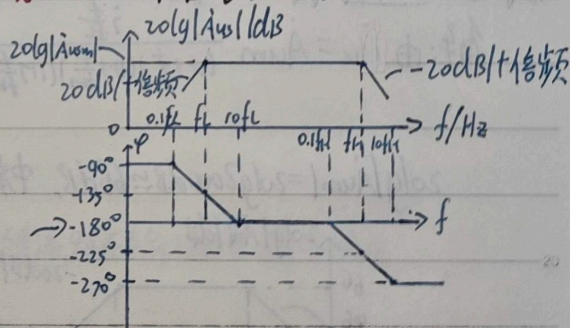 20lg|Ausm|
20lg|Aus|/dB
20dB/十倍频
-20dB/十倍频
0.1fL fL 10fL
0.1fH fH 10fH
0
f/Hz
φ
-90°
-135°
-180°
f
-225°
-270°